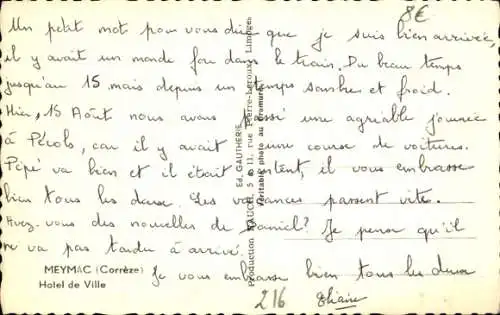 8€
Un petit mot pour vous dire que je suis bien arrivée
il y avait un monde fou dans le train. Du beau temps
jusqu'au 15 mais depuis un temps sombre et froid.
Hier, 15 Août nous avons passé une agréable journée
à Pérols, car il y avait une course de voitures.
Pépé va bien et il était content, il vous embrasse
bien tous les deux. Les vacances passent vite.
Avez-vous des nouvelles de Daniel? Je pense qu'il
ne va pas tarder à arriver.
Je vous embrasse bien tous les deux
MEYMAC (Corrèze)
Hotel de Ville
216
Ed. GAUTHERIE
Production 5 & 11, rue Pierre-Leroux, Limoges
Véritable photo au Bromure